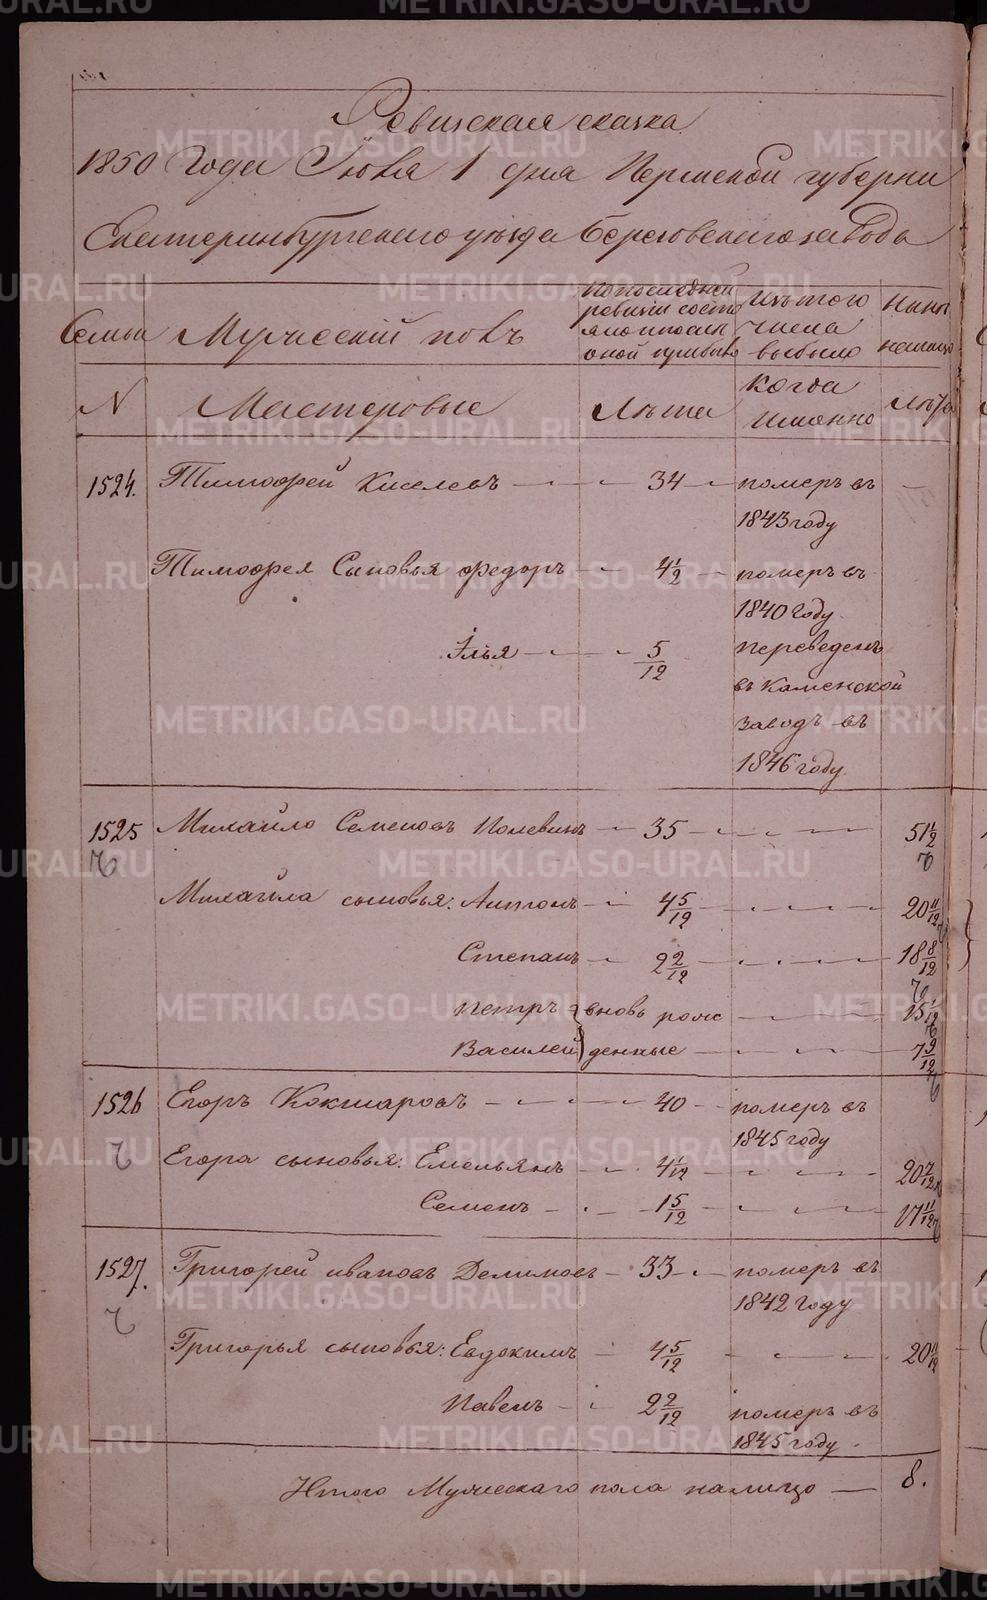 Ревижская сказка
1850 Года Июня 1 дня Пермской губернии
Екатеринбургскаго уезда Березовскаго завода
Семьи Мужескій полъ По последней ревизіи состояло и после оной прибыло Изъ того числа выбыло Ныне на лицо
N Мастеровые Лѣта когда именно Лѣта
1524. Тимофей Киселевъ 34 померъ въ —
1843 году
Тимофея Сыновья Федоръ 4 1/2 померъ въ
1840 году.
Илья 5/12 переведенъ
въ Каменской
заводъ въ
1846 году
1525 Михайло Семеновъ Полевинъ 35 51 1/2
Михайла сыновья: Антонъ 4 5/12 20 11/12
Степанъ 2 2/12 18 8/12
Петръ вновь рож 15 1/12
Василей денные 7 9/12
1526 Егоръ Кокшаровъ 40 померъ въ
1845 году
Егора сыновья: Емельянъ 4 1/12 20 7/12
Семенъ 1 5/12 17 11/12
1527. Григорей Ивановъ Демимовъ 33 померъ въ
1842 году
Григорья сыновья: Евдокимъ 4 5/12 20 11/12
Павелъ 2 2/12 померъ въ
1845 году.
Итого Мужескаго пола на лицо — 8.
METRIKI.GASO-URAL.RU